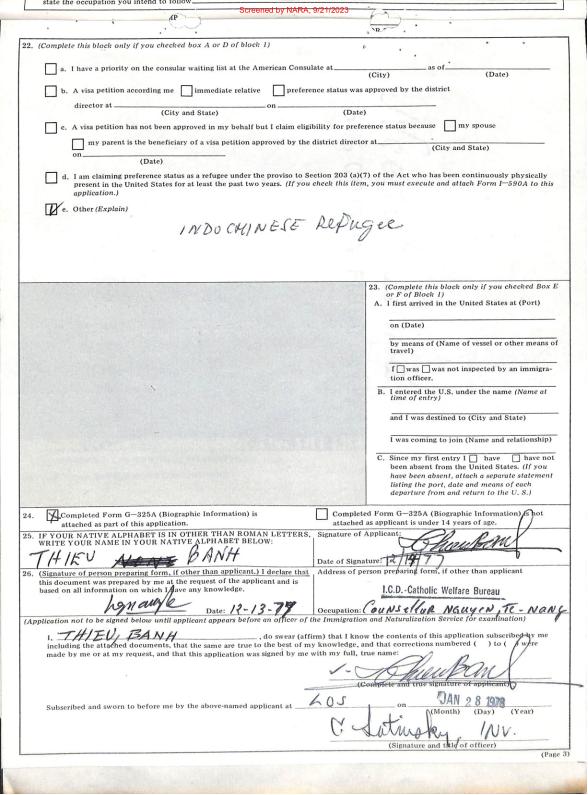 state the occupation you intend to follow
Screened by NARA, 9/21/2023
22. (Complete this block only if you checked box A or D of block 1)
a. I have a priority on the consular waiting list at the American Consulate at as of
(City) (Date)
b. A visa petition according me immediate relative preference status was approved by the district
director at on
(City and State) (Date)
c. A visa petition has not been approved in my behalf but I claim eligibility for preference status because my spouse
my parent is the beneficiary of a visa petition approved by the district director at
(City and State)
on
(Date)
d. I am claiming preference status as a refugee under the proviso to Section 203 (a)(7) of the Act who has been continuously physically
present in the United States for at least the past two years. (If you check this item, you must execute and attach Form I-590A to this
application.)
e. Other (Explain)
INDOCHINESE Refugee
23. (Complete this block only if you checked Box E
or F of Block 1)
A. I first arrived in the United States at (Port)
on (Date)
by means of (Name of vessel or other means of
travel)
I was was not inspected by an immigra-
tion officer.
B. I entered the U.S. under the name (Name at
time of entry)
and I was destined to (City and State)
I was coming to join (Name and relationship)
C. Since my first entry I have have not
been absent from the United States. (If you
have been absent, attach a separate statement
listing the port, date and means of each
departure from and return to the U. S.)
24. Completed Form G-325A (Biographic Information) is
attached as part of this application.
Completed Form G-325A (Biographic Information) is not
attached as applicant is under 14 years of age.
25. IF YOUR NATIVE ALPHABET IS IN OTHER THAN ROMAN LETTERS,
WRITE YOUR NAME IN YOUR NATIVE ALPHABET BELOW:
THIEU BANH
Signature of Applicant:
Date of Signature:
26. (Signature of person preparing form, if other than applicant.) I declare that
this document was prepared by me at the request of the applicant and is
based on all information on which I have any knowledge.
Date: 12-13-77
Address of person preparing form, if other than applicant
I.C.D.-Catholic Welfare Bureau
Occupation: Counsellor Nguyen, Te-Nang
(Application not to be signed below until applicant appears before an officer of the Immigration and Naturalization Service for examination)
I, THIEU, BANH, do swear (affirm) that I know the contents of this application subscribed by me
including the attached documents, that the same are true to the best of my knowledge, and that corrections numbered ( ) to ( ) were
made by me or at my request, and that this application was signed by me with my full, true name:
(Complete and true signature of applicant)
Subscribed and sworn to before me by the above-named applicant at LOS on JAN 28 1978
(Month) (Day) (Year)
C. Satinsky, INV.
(Signature and title of officer)
(Page 3)